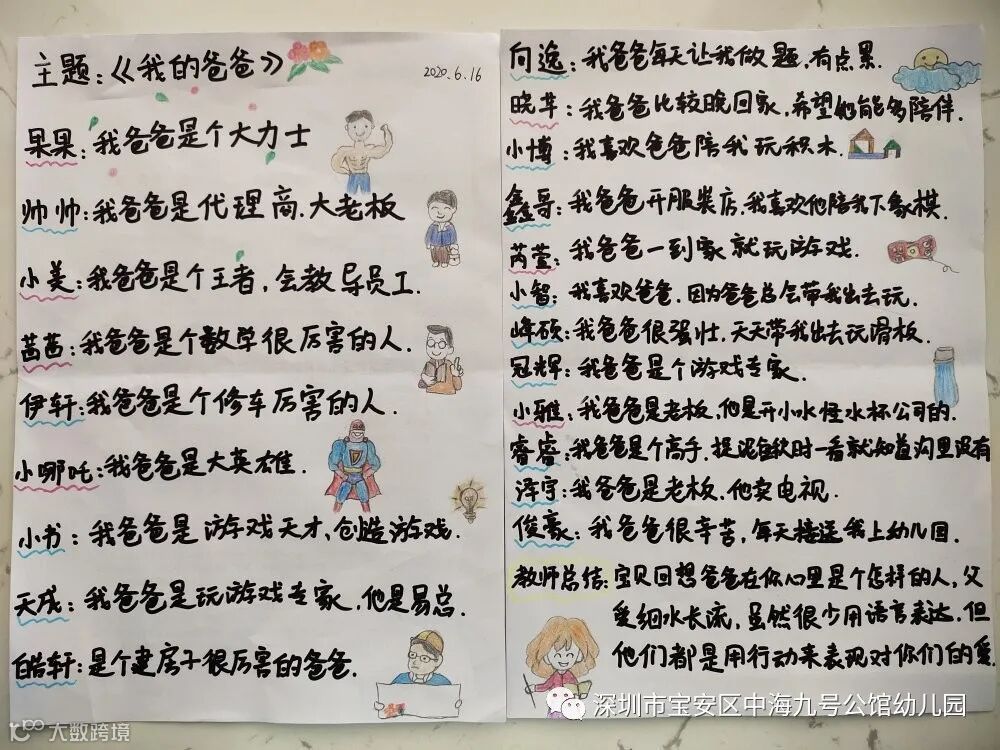 主题:《我的爸爸》
2020.6.16
果果:我爸爸是个大力士
帅帅:我爸爸是代理商.大老板
小美:我爸爸是个王者,会教导员工.
茜茜:我爸爸是个数学很厉害的人.
伊轩:我爸爸是个修车厉害的人.
小哪吒:我爸爸是大英雄.
小书:我爸爸是游戏天才,创造游戏.
天成:我爸爸是玩游戏专家,他是易总.
皓轩:是个建房子很厉害的爸爸.
向逸:我爸爸每天让我做题,有点累.
晓芊:我爸爸比较晚回家,希望他能多陪伴.
小博:我喜欢爸爸陪我玩积木.
鑫哥:我爸爸开服装店,我喜欢他陪我下象棋.
芮萱:我爸爸一到家就玩游戏.
小智:我喜欢爸爸.因为爸爸总会带我出去玩.
峰硕:我爸爸很强壮,天天带我出去玩滑板.
冠辉:我爸爸是个游戏专家.
小雅:我爸爸是老板,他是开小水怪水杯公司的.
睿睿:我爸爸是个高手.捉泥鳅时一看就知道沟里没有
泽宇:我爸爸是老板.他卖电视.
俊豪:我爸爸很辛苦,每天接送我上幼儿园.
教师总结:宝贝回想爸爸在你心里是个怎样的人,父
爱细水长流,虽然很少用语言表达.但
他们都是用行动来表现对你们的爱.
深圳市宝安区中海九号公馆幼儿园
大数跨境